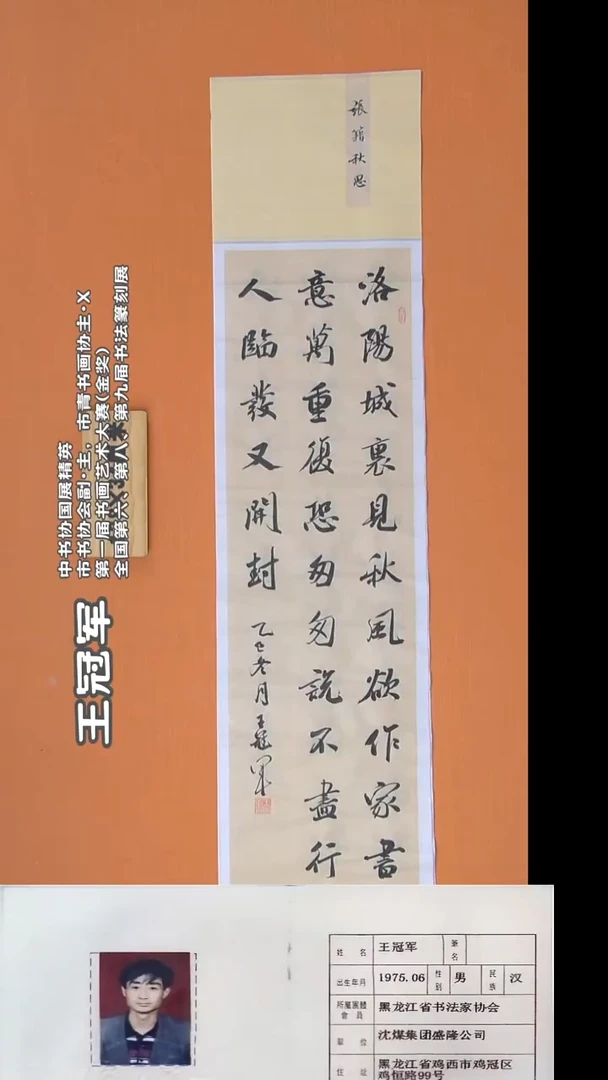 張籍秋思
洛陽城裏見秋風欲作家書
意萬重復恐匆匆說不盡行
人臨發又開封
乙巳冬月王冠軍
王冠军
中书协国展精英
市书协会副·主，市青书画协主·X
第一届书画艺术大赛(金奖)
全国第六、第八、第九届书法篆刻展
姓名 王冠军 笔名
出生年月 1975.06 性别 男 民族 汉
所属团体会员 黑龙江省书法家协会
单位 沈煤集团盛隆公司
住址 黑龙江省鸡西市鸡冠区鸡恒路99号